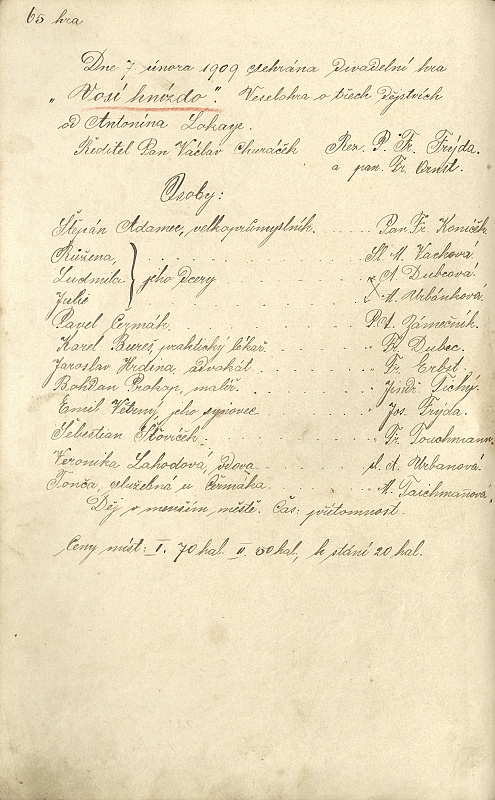 65 hra
Dne 7 února 1909 sehrána divadelní hra
"Vosí hnízdo". Veselohra o třech dějstvích
od Antonína Lokaye.
Ředitel Pan Václav Churáček Rez. P. Fr. Frýda.
a pan. Fr. Ornst.
Osoby:
Štěpán Adamec, velkoprůmyslník. Pan Fr. Koníček
Růžena, Sl. M. Vachová
Ludmila } jeho dcery " A Dubcová
Julie " M. Urbánková
Pavel Čermák. P. A. Zámečník.
Karel Bureš, praktický lékař. " Fr. Dubec.
Jaroslav Hrdina, advokát. " Fr. Erbst.
Bohdan Prokop, malíř. " Jindř. Tichý.
Emil Větrný, jeho synovec " Jos. Frýda.
Šebestian Šťovíček. " Fr. Touchmann.
Veronika Lahodová, vdova sl. A. Urbanová.
Tonča služebná u Čermáka. " M. Taichmanová.
Děj v menším městě. Čas: přítomnost.
Ceny míst: I. 70 hal. II. 50 hal., k stání 20 hal.